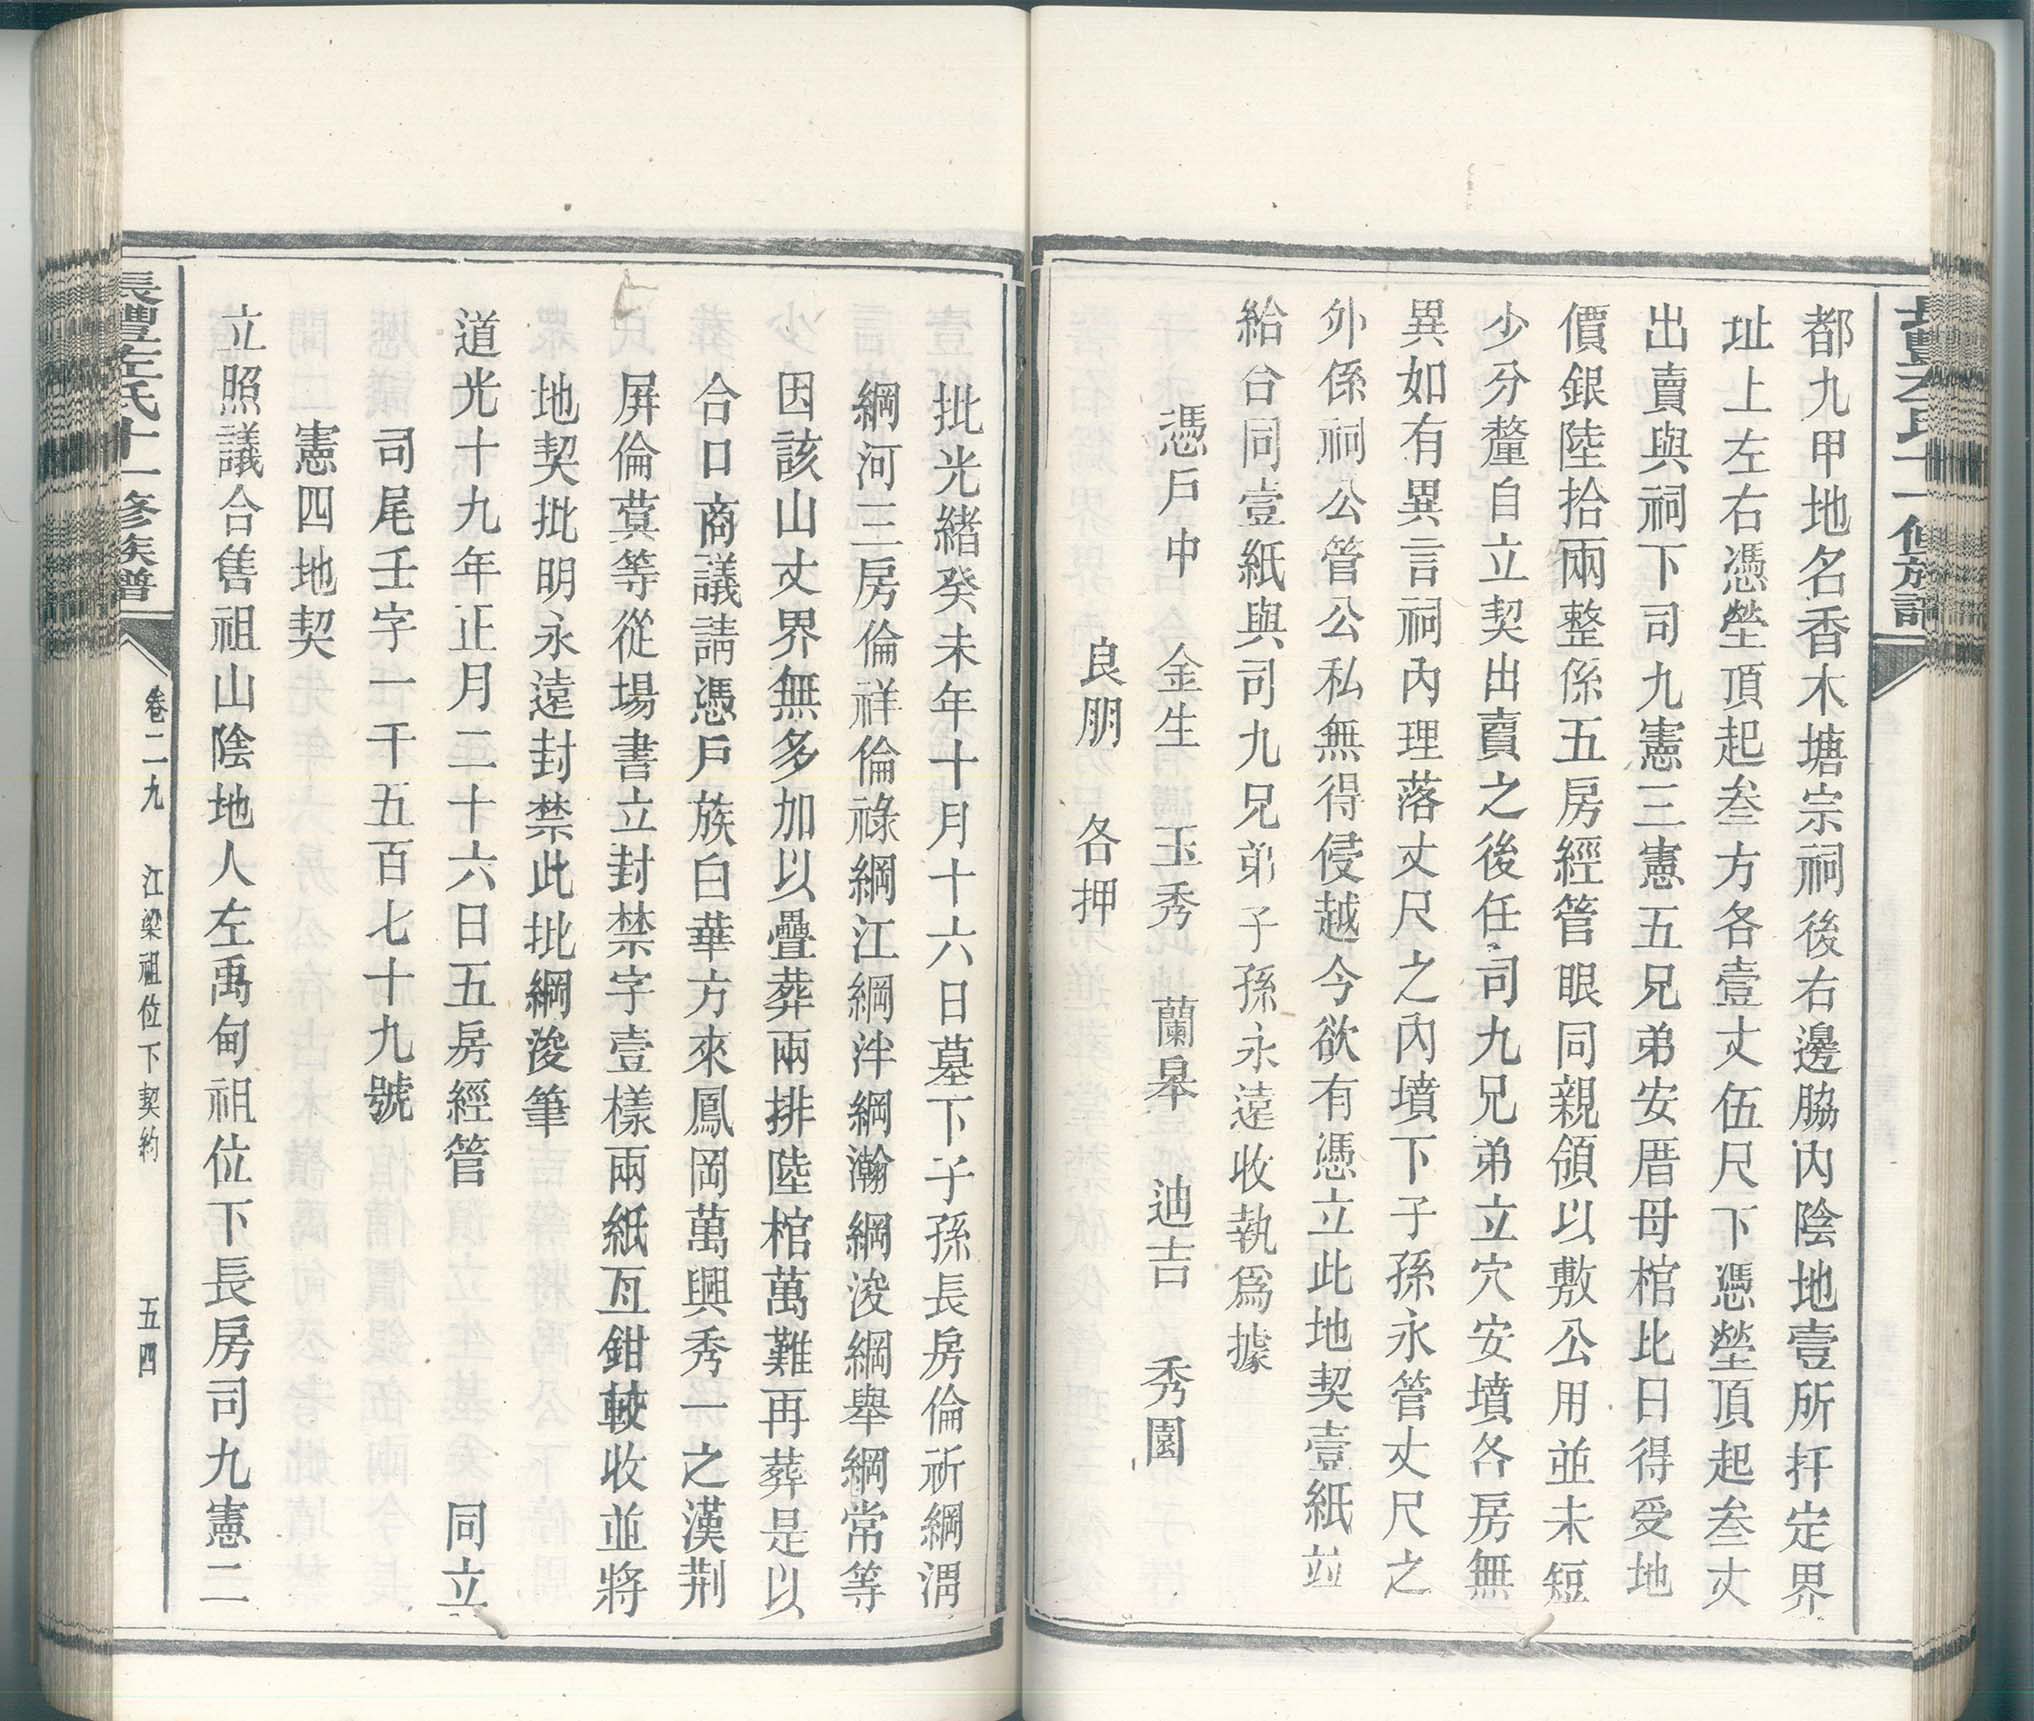 都九甲地名香木塘宗祠後右邊脇內陰地壹所扦定界
址上左右憑塋頂起叁方各壹丈伍尺下憑塋頂起叁丈
出賣與祠下司九憲三憲五兄弟安厝母棺比日得受地
價銀陸拾兩整係五房經管眼同親領以敷公用並未短
少分釐自立契出賣之後任司九兄弟立穴安墳各房無
異如有異言祠內理落丈尺之內墳下子孫永管丈尺之
外係祠公管公私無得侵越今欲有憑立此地契壹紙並
給合同壹紙與司九兄弟子孫永遠收執爲據
憑戶中　金生　玉秀　蘭皋　迪吉　秀園
良朋　各押
批光緒癸未年十月十六日墓下子孫長房倫祈綱渭
綱河三房倫祥倫祿綱江綱泮綱瀚綱浚綱舉綱常等
因該山丈界無多加以疊葬兩排陸棺萬難再葬是以
合口商議請憑戶族白華方來鳳岡萬興秀一之漢荆
屏倫蓂等從場書立封禁字壹樣兩紙互鉗較收並將
地契批明永遠封禁此批綱浚筆
道光十九年正月二十六日五房經管　同立
司尾壬字一千五百七十九號
憲四地契
立照議合售祖山陰地人左禹甸祖位下長房司九憲二
長澧左氏十一修族譜　卷二九　江梁祖位下契約　五四